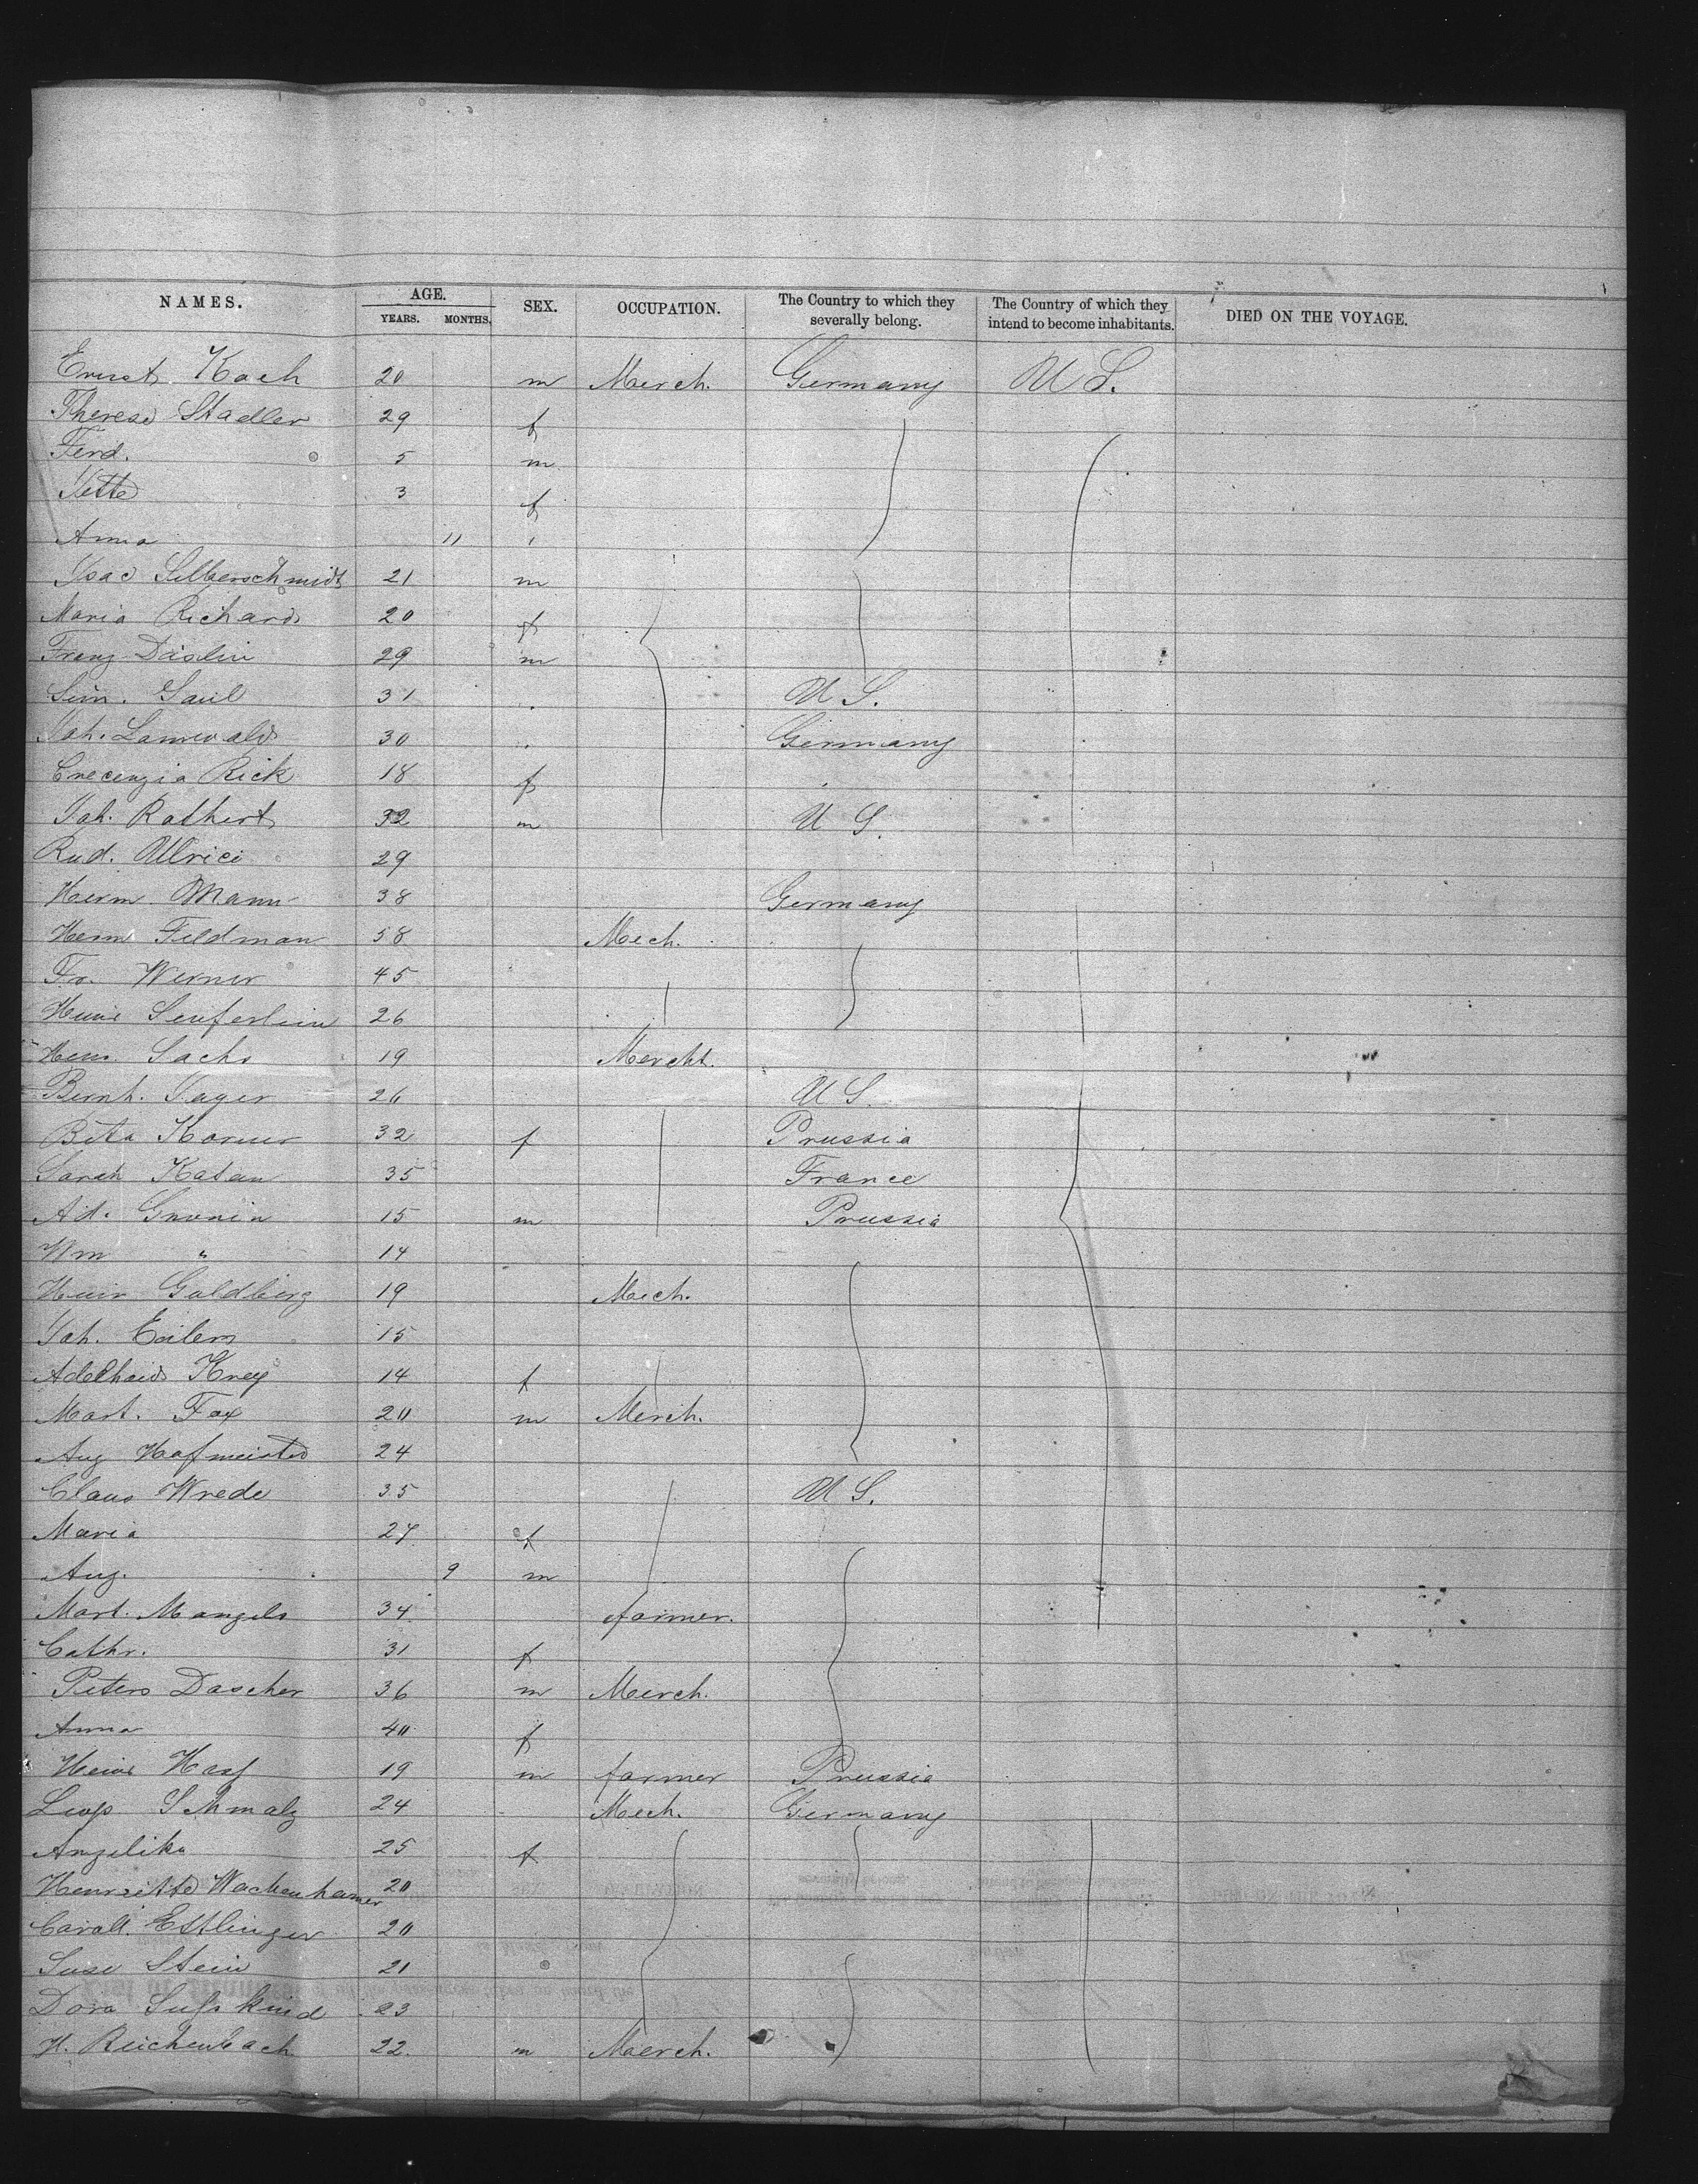 NAMES. AGE. SEX. OCCUPATION. The Country to which they severally belong. The Country of which they intend to become inhabitants. DIED ON THE VOYAGE.
YEARS. MONTHS.
Ernst Koch 20 m Merch. Germany U S.
Therese Stadler 29 f
Ferd. 5 m
Jette 3 f
Anna 11 "
Isac Silberschmidt 21 m
Maria Richard 20 f
Franz Däslin 29 m
Sim. Saul 31 U S.
Joh. Lannwald 30 Germany
Crecenzia Rick 18 f
Joh. Rathert 32 m U S.
Rud. Ullrici 29
Herm. Mann 38 Germany
Herm Feldman 58 Mech.
Fr. Werner 45
Heinr Seuferlein 26
Herm. Sachs 19 Mercht.
Bernh. Jager 26 U S.
Beta Korner 32 f Prussia
Sarah Katan 35 France
Ad. Gronin 15 m Prussia
Wm " 14
Heinr Goldberg 19 Mech.
Joh. Eilers 15
Adelheid Krey 14 f
Mart. Fox 20 m Merch.
Aug Hofmeister 24
Claus Wrede 35 U S.
Maria 27 f
Aug. 9 m
Mart. Mangels 34 farmer.
Cathr. 31 f
Peters Dascher 36 m Merch.
Anna 40 f
Heinr 19 m farmer Prussia
Leop Schmalz 24 Mech. Germany
Angelika 25 f
Henriette Wachenhamer 20
Caroll. Ettlinger 20
Suse Stein 21
Dora Susskind 23
H. Reichenbach 22. m Merch.